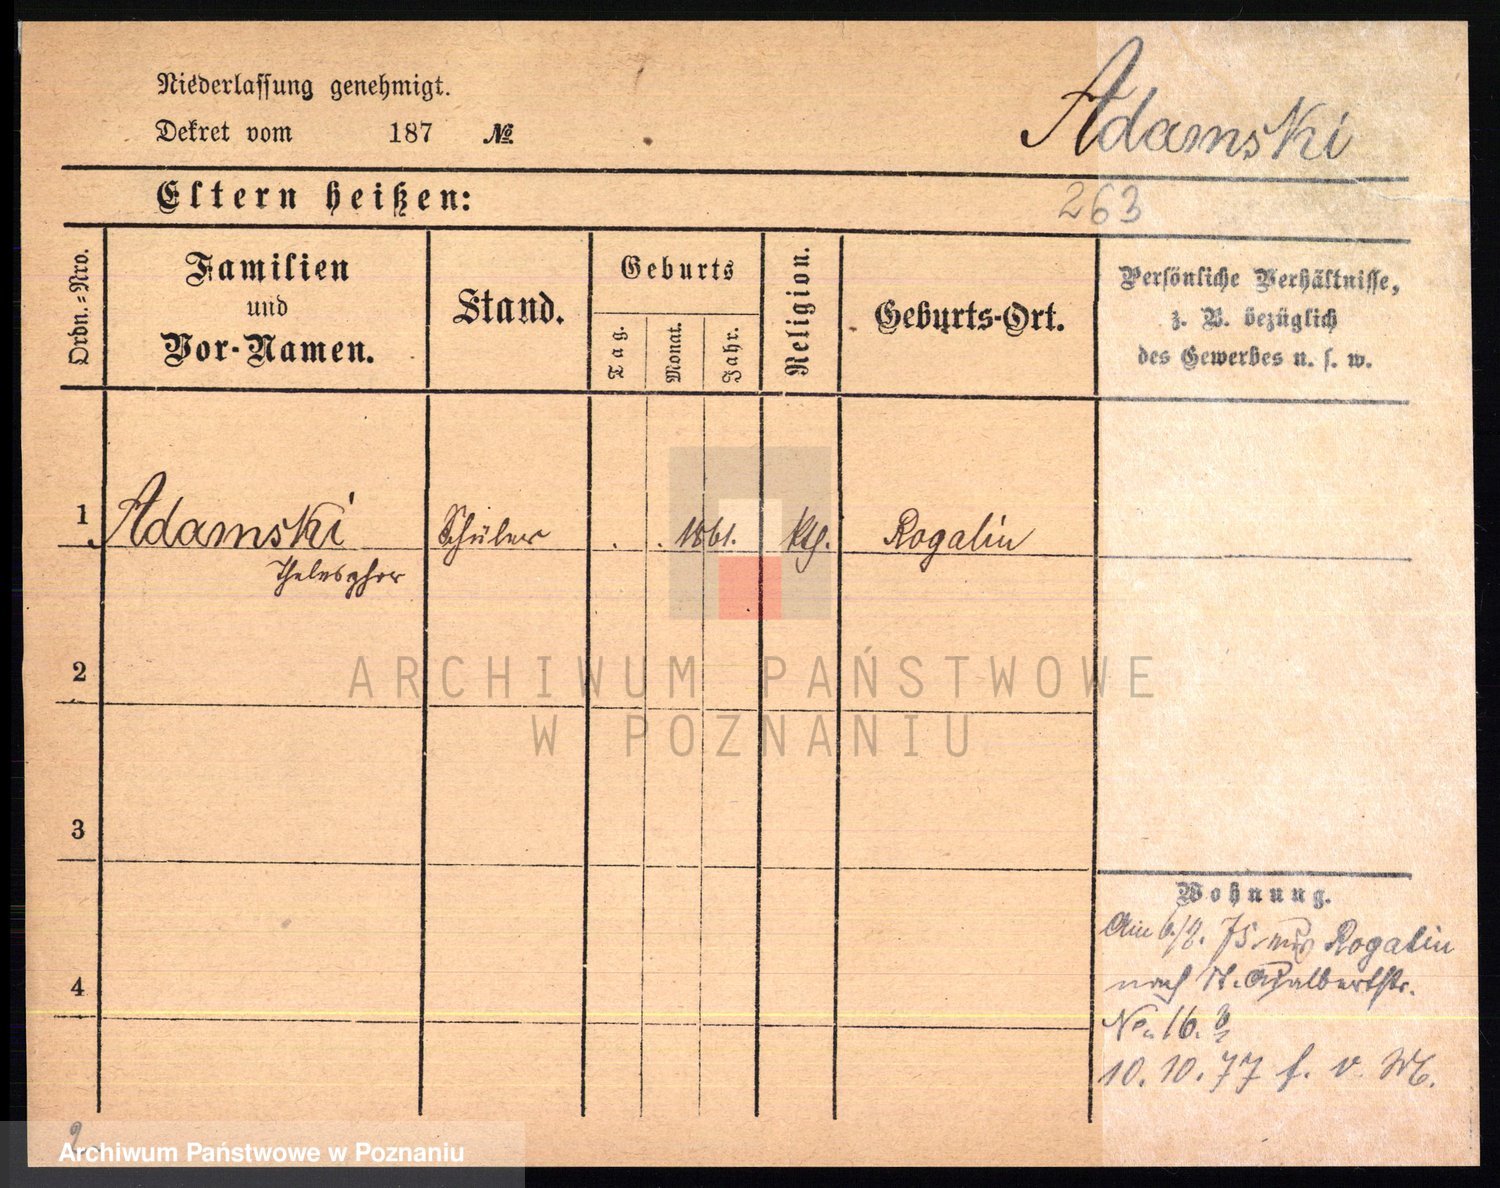 Niederlassung genehmigt.
Adamski
Dekret vom 187 №
Eltern heißen:
263
Ordn.=Nro.
Familien
und
Vor-Namen.
Stand.
Geburts
Tag.
Monat.
Jahr.
Religion.
Geburts-Ort.
Persönliche Verhältnisse,
z. B. bezüglich
des Gewerbes u. s. w.
1 Adamski Schüler . . 1861. kth. Rogalin
Thelesphor
2
3
4
Wohnung.
Am 6/8. 75. aus Rogalin
nach St. Adalbertstr.
No. 16.
10. 10. 77 f. v. M.
ARCHIWUM PAŃSTWOWE
W POZNANIU
Archiwum Państwowe w Poznaniu